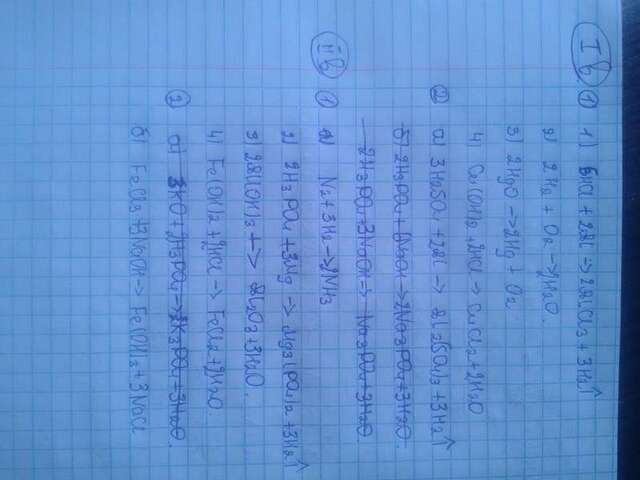 I в ① 1) 6HCl + 2Al → 2AlCl3 + 3H2↑
2) 2H2 + O2 → 2H2O.
3) 2HgO → 2Hg + O2
4) Cu(OH)2 + 2HCl → CuCl2 + 2H2O
② а) 3H2SO4 + 2Al → Al2(SO4)3 + 3H2↑
б) 2H3PO4 + 6NaOH → 2Na3PO4 + 3H2O.
2H3PO4 + 3NaOH → Na3PO4 + 3H2O.
II в
① N2 + 3H2 → 2NH3
2) 2H3PO4 + 3Mg → Mg3(PO4)2 + 3H2↑
3) 2Al(OH)3 → Al2O3 + 3H2O.
4) Fe(OH)2 + 2HCl → FeCl2 + 2H2O.
② а) 3KO + 2H3PO4 → 2K3PO4 + 3H2O.
б) FeCl3 + 3NaOH → Fe(OH)3 + 3NaCl